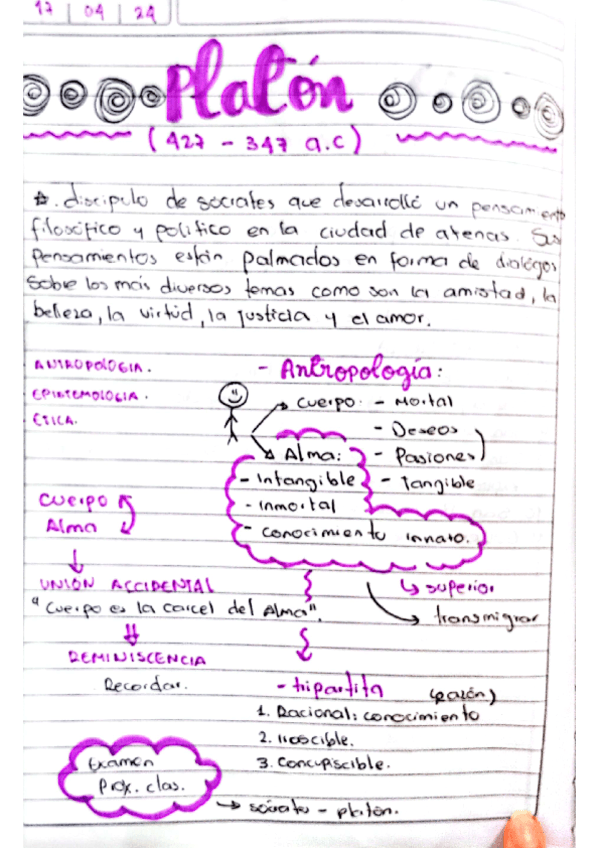 17 | 04 | 24
Platón
(427 - 347 a.C)
☆. discipulo de socrates que desarrolló un pensamiento
filosófico y político en la ciudad de atenas. Sus
pensamientos están palmados en forma de dialógos
sobre los más diversos temas como son la amistad, la
belleza, la virtud, la justicia y el amor.
ANTROPOLOGIA.
EPISTEMOLOGIA.
ETICA.
- Antropología:
cuerpo - Mortal
- Deseos
- Pasiones
- Tangible
Alma:
- Intangible
- Inmortal
- conocimiento innato.
↳ superior
→ transmigrar
Cuerpo
Alma
↓
UNION ACCIDENTAL
"Cuerpo es la carcel del Alma".
⇓
REMINISCENCIA
Recordar.
- tripartita (razón)
1. Racional: conocimiento
2. Irascible.
3. Concupiscible.
Examen
Prox. clas.
→ sócrates - platón.